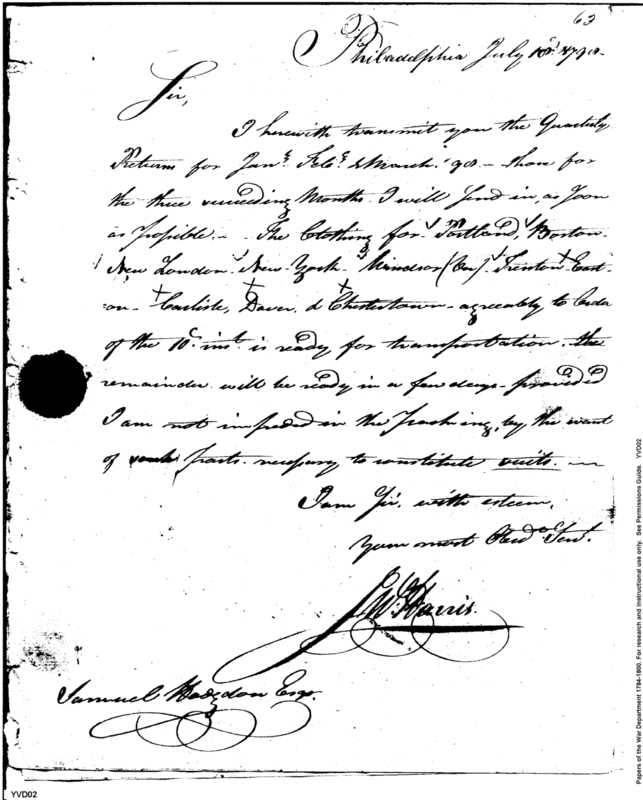 63
Philadelphia July 18th 1798-
Sir,
I herewith transmit you the Quarterly
Returns for Jany Feby & March. 98 - those for
the three succeeding Months I will send in, as soon
as possible. - The Clothing for Portland, Boston
New London - New York - Windsor (Con) Trenton East-
-on - Carlisle, Dover, & Chestertown - agreeably to Order
of the 10th inst. is ready for transportation. the
remainder will be ready in a few days - provided
I am not impeded in the packing, by the want
of parts necessary to constitute suits. -
I am Sir, with esteem,
Your most Obedt Servt.
Jno Harris
Samuel Hodgdon Esqr.
YVD02
Papers of the War Department 1784-1800. For research and instructional use only. See Permissions Guide. YVD02